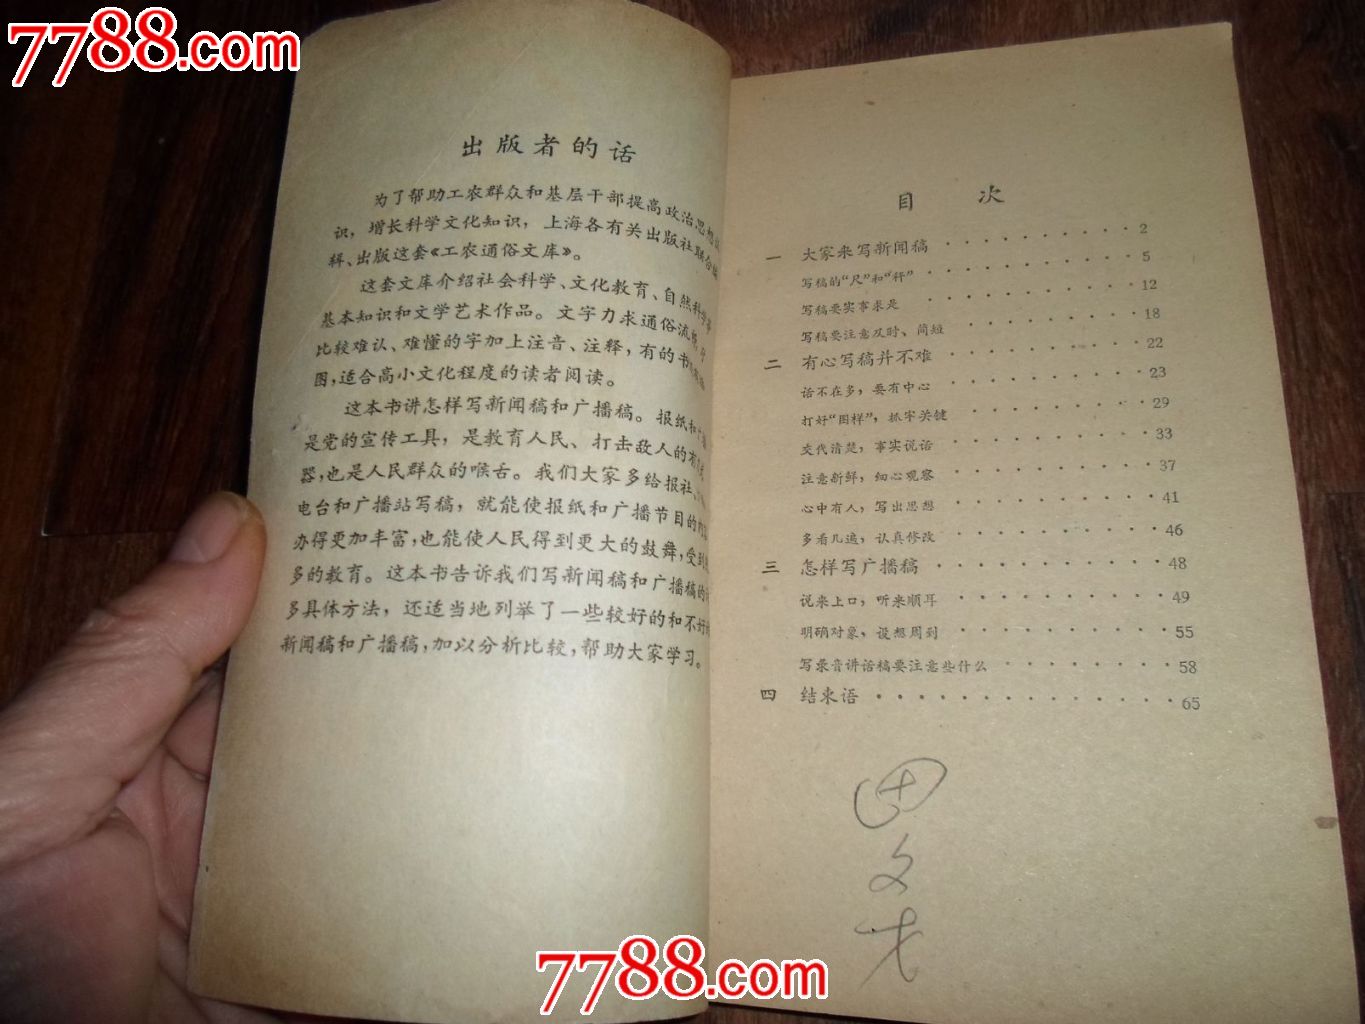 7788.com
出版者的话
为了帮助工农群众和基层干部提高政治思想
识，增长科学文化知识，上海各有关出版社联合
辑、出版这套《工农通俗文库》。
这套文库介绍社会科学、文化教育、自然科学
基本知识和文学艺术作品。文字力求通俗流
比较难认、难懂的字加上注音、注释，有的书
图，适合高小文化程度的读者阅读。
这本书讲怎样写新闻稿和广播稿。报纸和
是党的宣传工具，是教育人民、打击敌人的有
器，也是人民群众的喉舌。我们大家多给报社、
电台和广播站写稿，就能使报纸和广播节目的
办得更加丰富，也能使人民得到更大的鼓舞，受到
多的教育。这本书告诉我们写新闻稿和广播稿的
多具体方法，还适当地列举了一些较好的和不好
新闻稿和广播稿，加以分析比较，帮助大家学习。
目次
一 大家来写新闻稿 2
写稿的“尺”和“秤” 5
写稿要实事求是 12
写稿要注意及时、简短 18
二 有心写稿并不难 22
话不在多，要有中心 23
打好“图样”，抓牢关键 29
交代清楚，事实说话 33
注意新鲜，细心观察 37
心中有人，写出思想 41
多看几遍，认真修改 46
三 怎样写广播稿 48
说来上口，听来顺耳 49
明确对象，设想周到 55
写录音讲话稿要注意些什么 58
四 结束语 65
田文才
7788.com